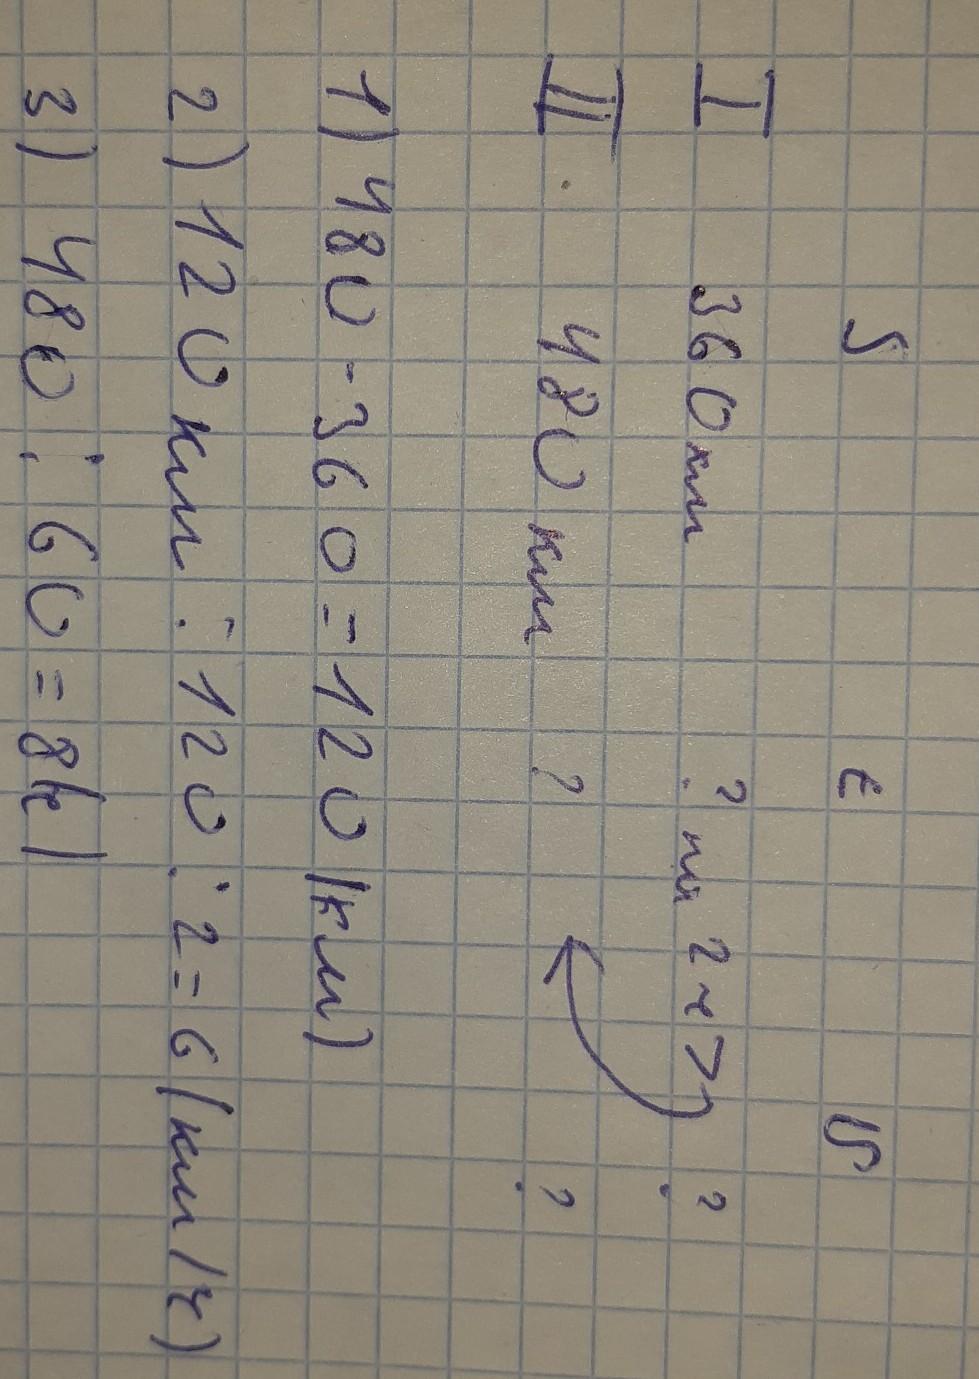 S t V
I 360 км ? на 2 ч > ?
II 480 км ? ?
1) 480 - 360 = 120 (км)
2) 120 км : 120 : 2 = 6 (км/ч)
3) 480 : 60 = 8 (ч)